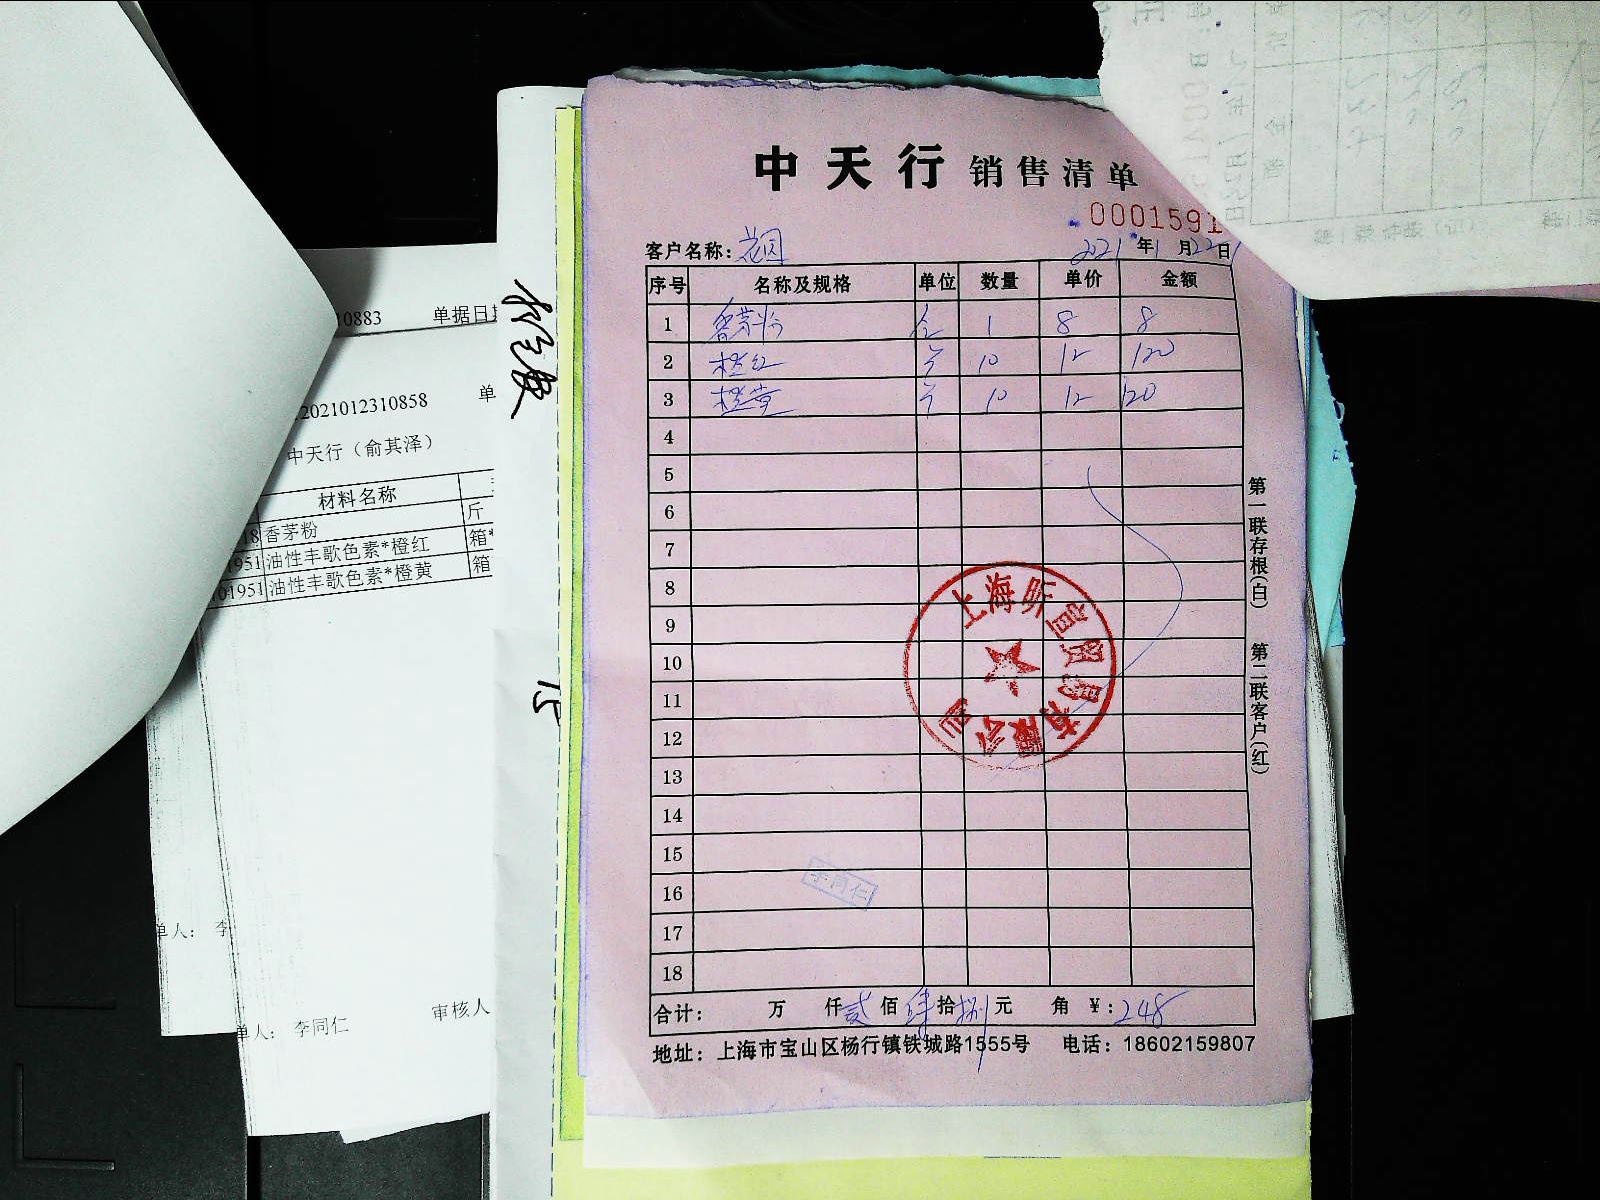 中天行 销售清单
0001591
客户名称: 花园 2021年1月22日
序号 名称及规格 单位 数量 单价 金额
1 香茅粉 1 8 8
2 橙红 10 12 120
3 橙黄 10 12 120
4
5
6
7
8
9
10
11
12
13
14
15
16
17
18
李同仁
上海昕宜贸易有限公司
合计: 万 仟 贰 佰 肆 拾 捌 元 角 ¥: 248
地址: 上海市宝山区杨行镇铁城路1555号 电话: 18602159807
第一联存根(白)
第二联客户(红)
10883 单据日期
2021012310858 单
中天行（俞其泽）
材料名称
18 香茅粉 斤
1951 油性丰歌色素*橙红 箱*
01951 油性丰歌色素*橙黄 箱
15
单人: 李
单人: 李同仁 审核人